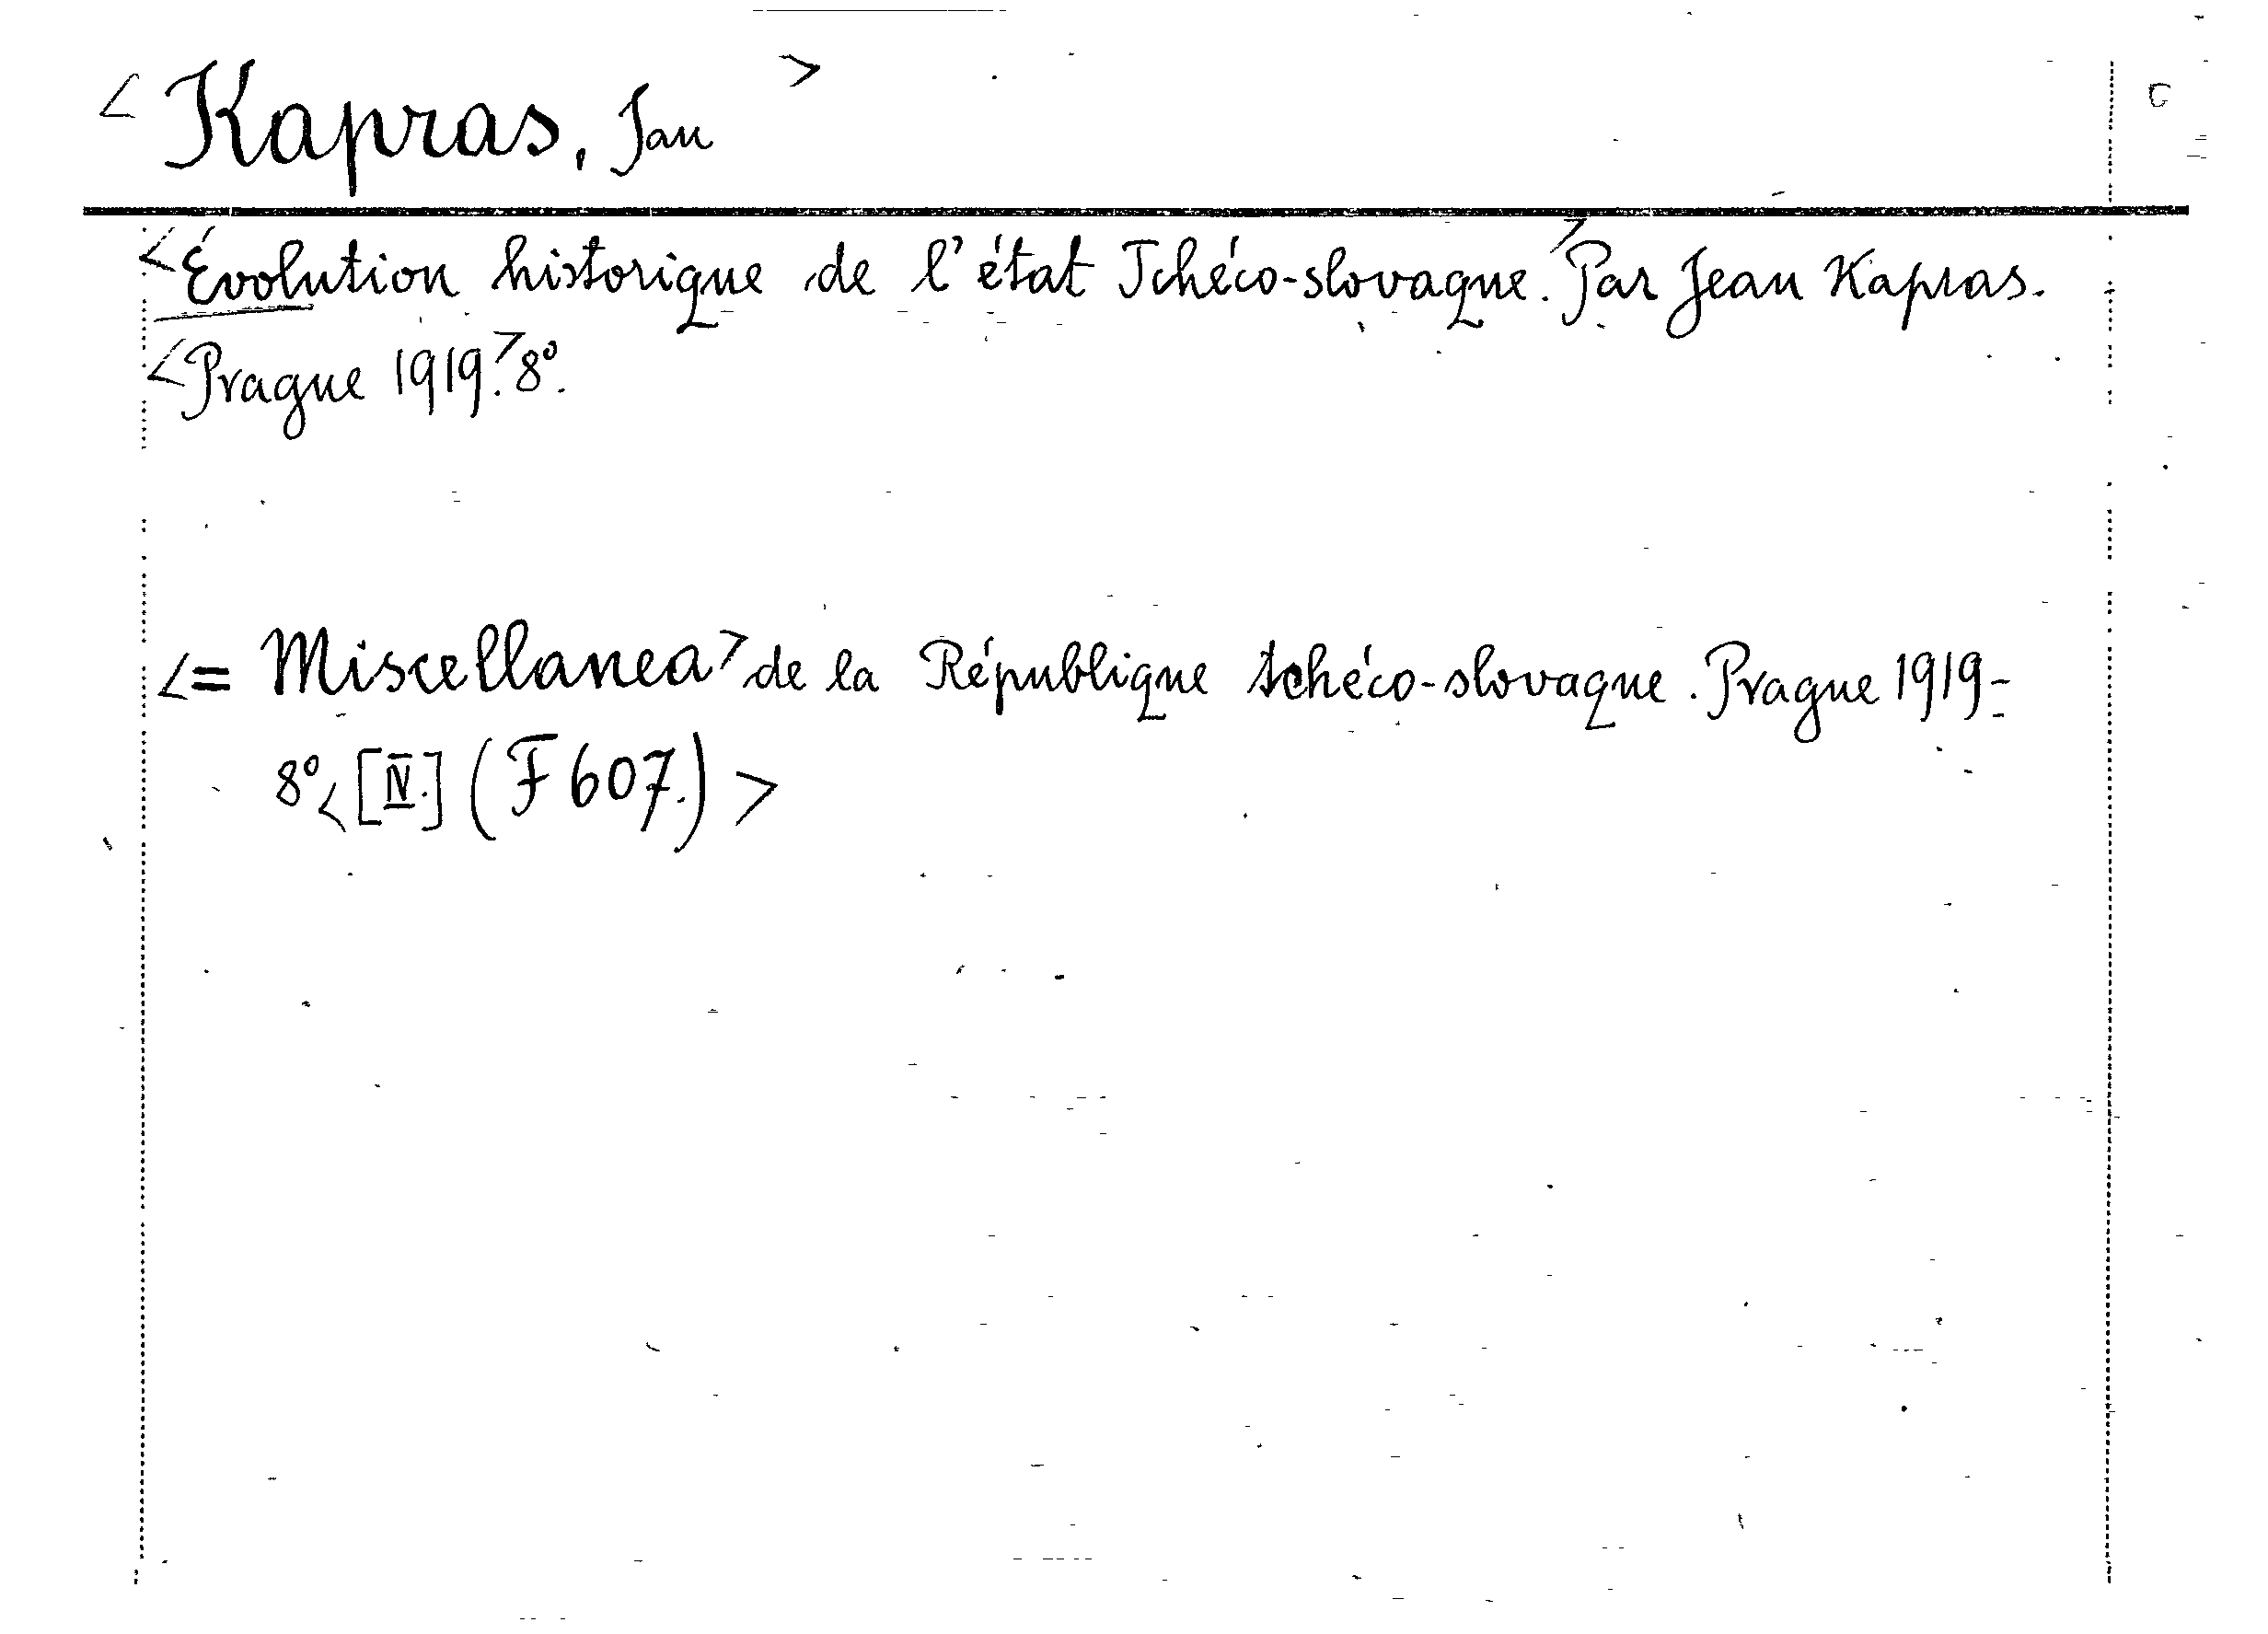 < Kapras, Jan > C
<Évolution historique de l'état Tchéco-slovaque.> Par Jean Kapras.
<Prague 1919.> 8°.
<= Miscellanea> de la République tchéco-slovaque. Prague 1919-
8° <[IV.] (F 607.)>